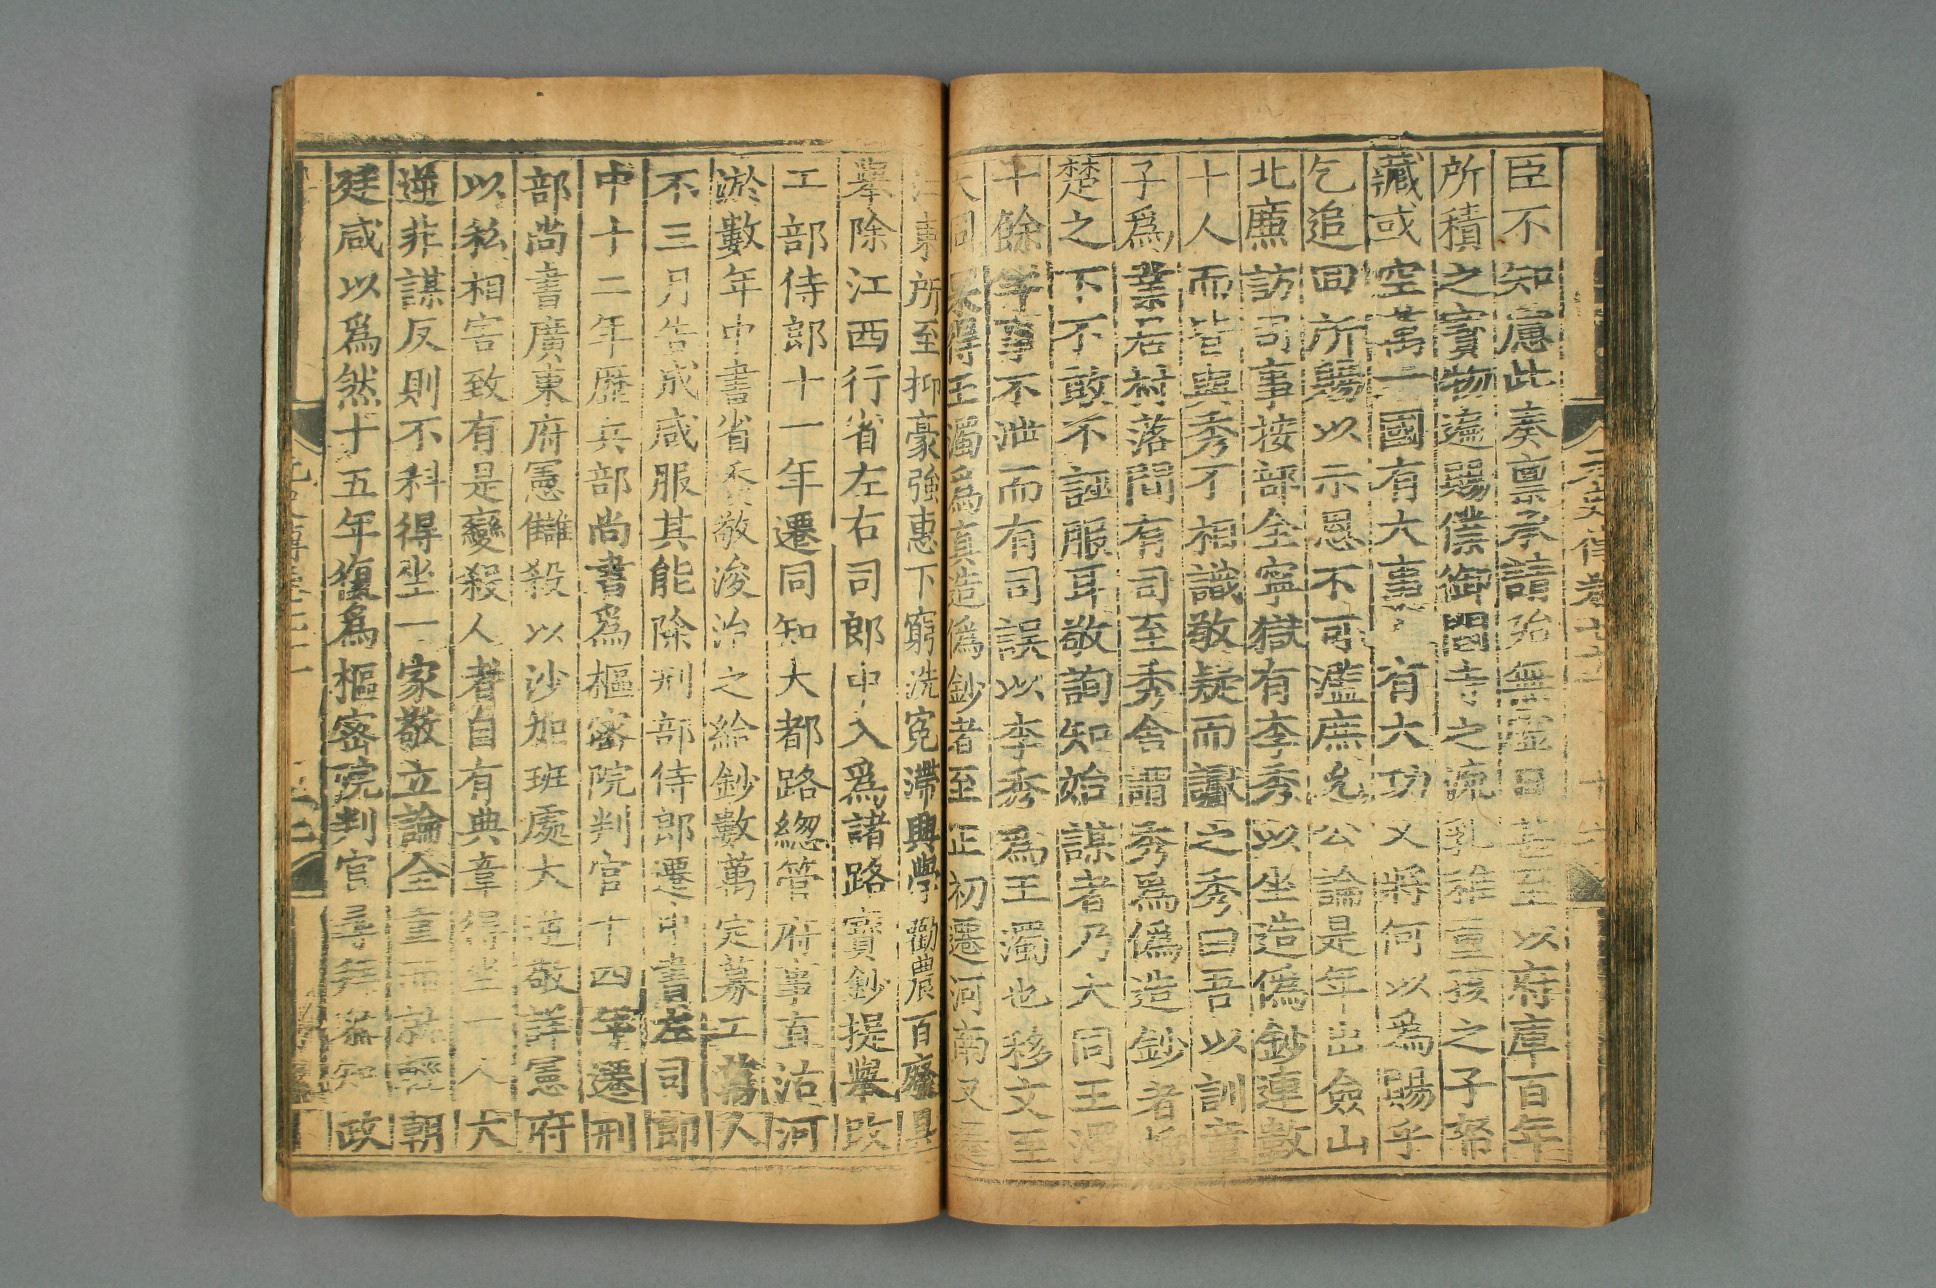 臣不知慮此奏稟承請殆無虛日甚至以府庫百年
所積之寶物遍賜僕御閽寺之流乳稚童孩之子帑
藏或空萬一國有大事人有大功又將何以爲賜乎
乞追回所賜以示恩不可濫庶允公論是年出僉山
北廉訪司事按部全寧獄有李秀以坐造僞鈔連數
十人而皆與秀不相識敬疑而讞之秀曰吾以訓童
子爲業居村落間有司至秀舍謂秀爲僞造鈔者捶
楚之下不敢不誣服耳敬詢知始謀者乃大同王濁
十餘年事不泄而有司誤以李秀爲王濁也移文至
大同果得王濁爲直造僞鈔者至正初遷河南又遷
江東所至抑豪強惠下窮洗冤滯興學勸農百廢具
舉除江西行省左右司郎中入爲諸路寶鈔提舉改
工部侍郎十一年遷同知大都路緫管府事直沽河
淤數年中書省委敬浚治之給鈔數萬定募工萬人
不三月告成咸服其能除刑部侍郎遷中書左司郎
中十二年歷兵部尚書爲樞密院判官十四年遷刑
部尚書廣東府憲讎殺以沙加班處大逆敬詳憲府
以私相害致有是變殺人者自有典章得坐一人大
逆非謀反則不科得坐一家敬立論全重而就輕朝
廷咸以爲然十五年復爲樞密院判官尋拜參知政